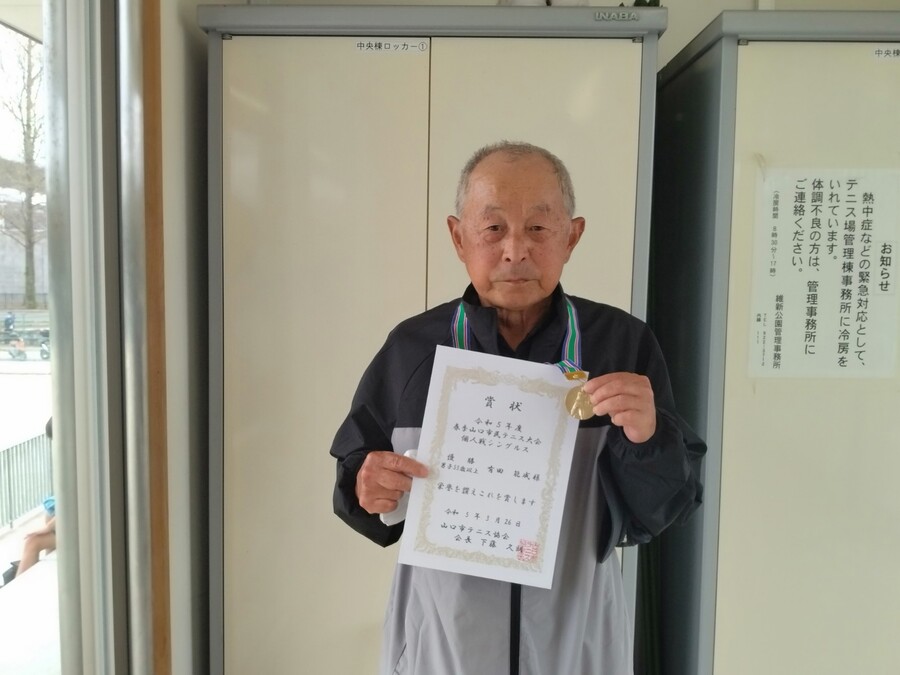 INABA
中央棟ロッカー①
中央棟
お知らせ
熱中症などの緊急対応として、
テニス場管理棟事務所に冷房を
いれています。
体調不良の方は、管理事務所に
ご連絡ください。
維新公園管理事務所
賞状
令和5年度
春季山口市民テニス大会
個人戦シングルス
優勝
男子55歳以上 有田 能成様
栄誉を讃えこれを賞します
令和5年3月26日
山口市テニス協会
会長 下藤